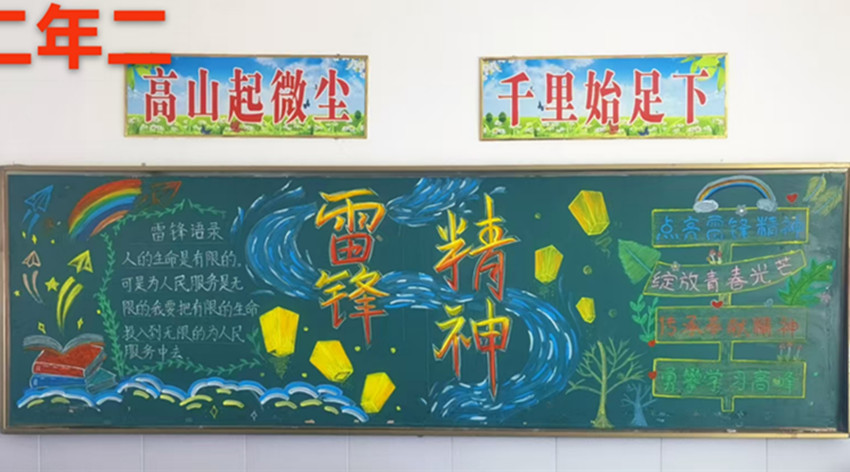 二年二
高山起微尘
千里始足下
雷锋语录
人的生命是有限的,
可是为人民服务是无
限的我要把有限的生命
投入到无限的为人民
服务中去
雷锋
精神
点亮雷锋精神
绽放青春光芒
传承奉献精神
勇攀学习高峰